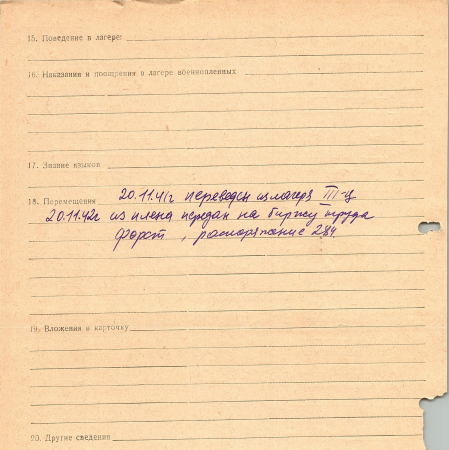 15. Поведение в лагере:
16. Наказания и поощрения в лагере военнопленных
17. Знание языков
18. Перемещения 20.11.41г переведен из лагеря III-Ц
20.11.42г из плена передан на биржу труда
Форст, распоряжение
19. Вложения в карточку
20. Другие сведения